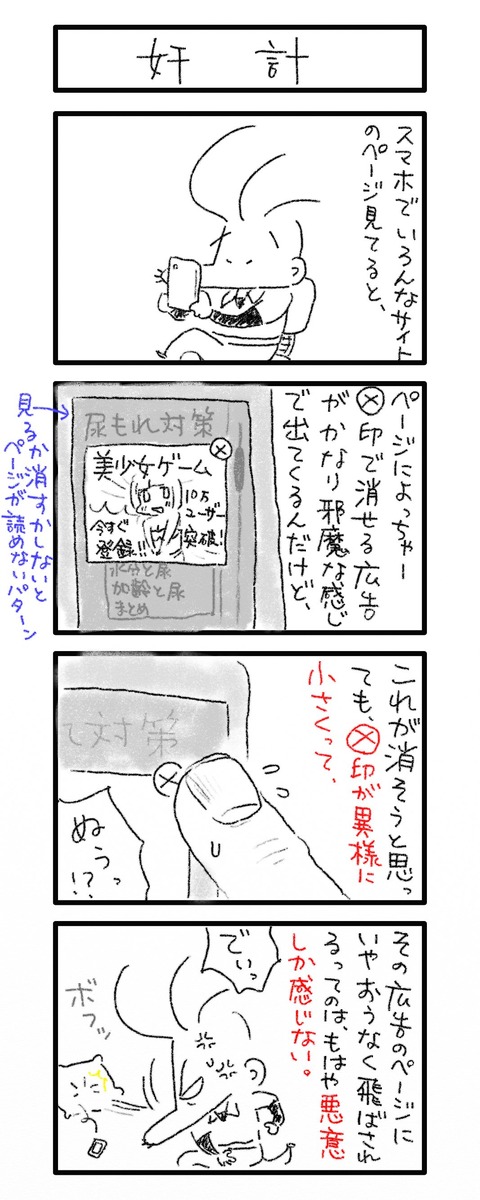 奸計
スマホでいろんなサイト
のページ見てると、
ページによっちゃー
ⓧ印で消せる広告
がかなり邪魔な感じ
で出てくるんだけど、
尿もれ対策
ⓧ
美少女ゲーム
10万
ユーザー
突破!
今すぐ
登録!!
水分と尿
加齢と尿
まとめ
見るか消すかしないと
ページが読めないパターン
これが消そうと思っ
ても、ⓧ印が異様に
小さくって、
て対策
ⓧ
ぬぅっ
!?
その広告のページに
いやおうなく飛ばされ
るってのは、もはや悪意
しか感じない。
でいっ
ボフッ